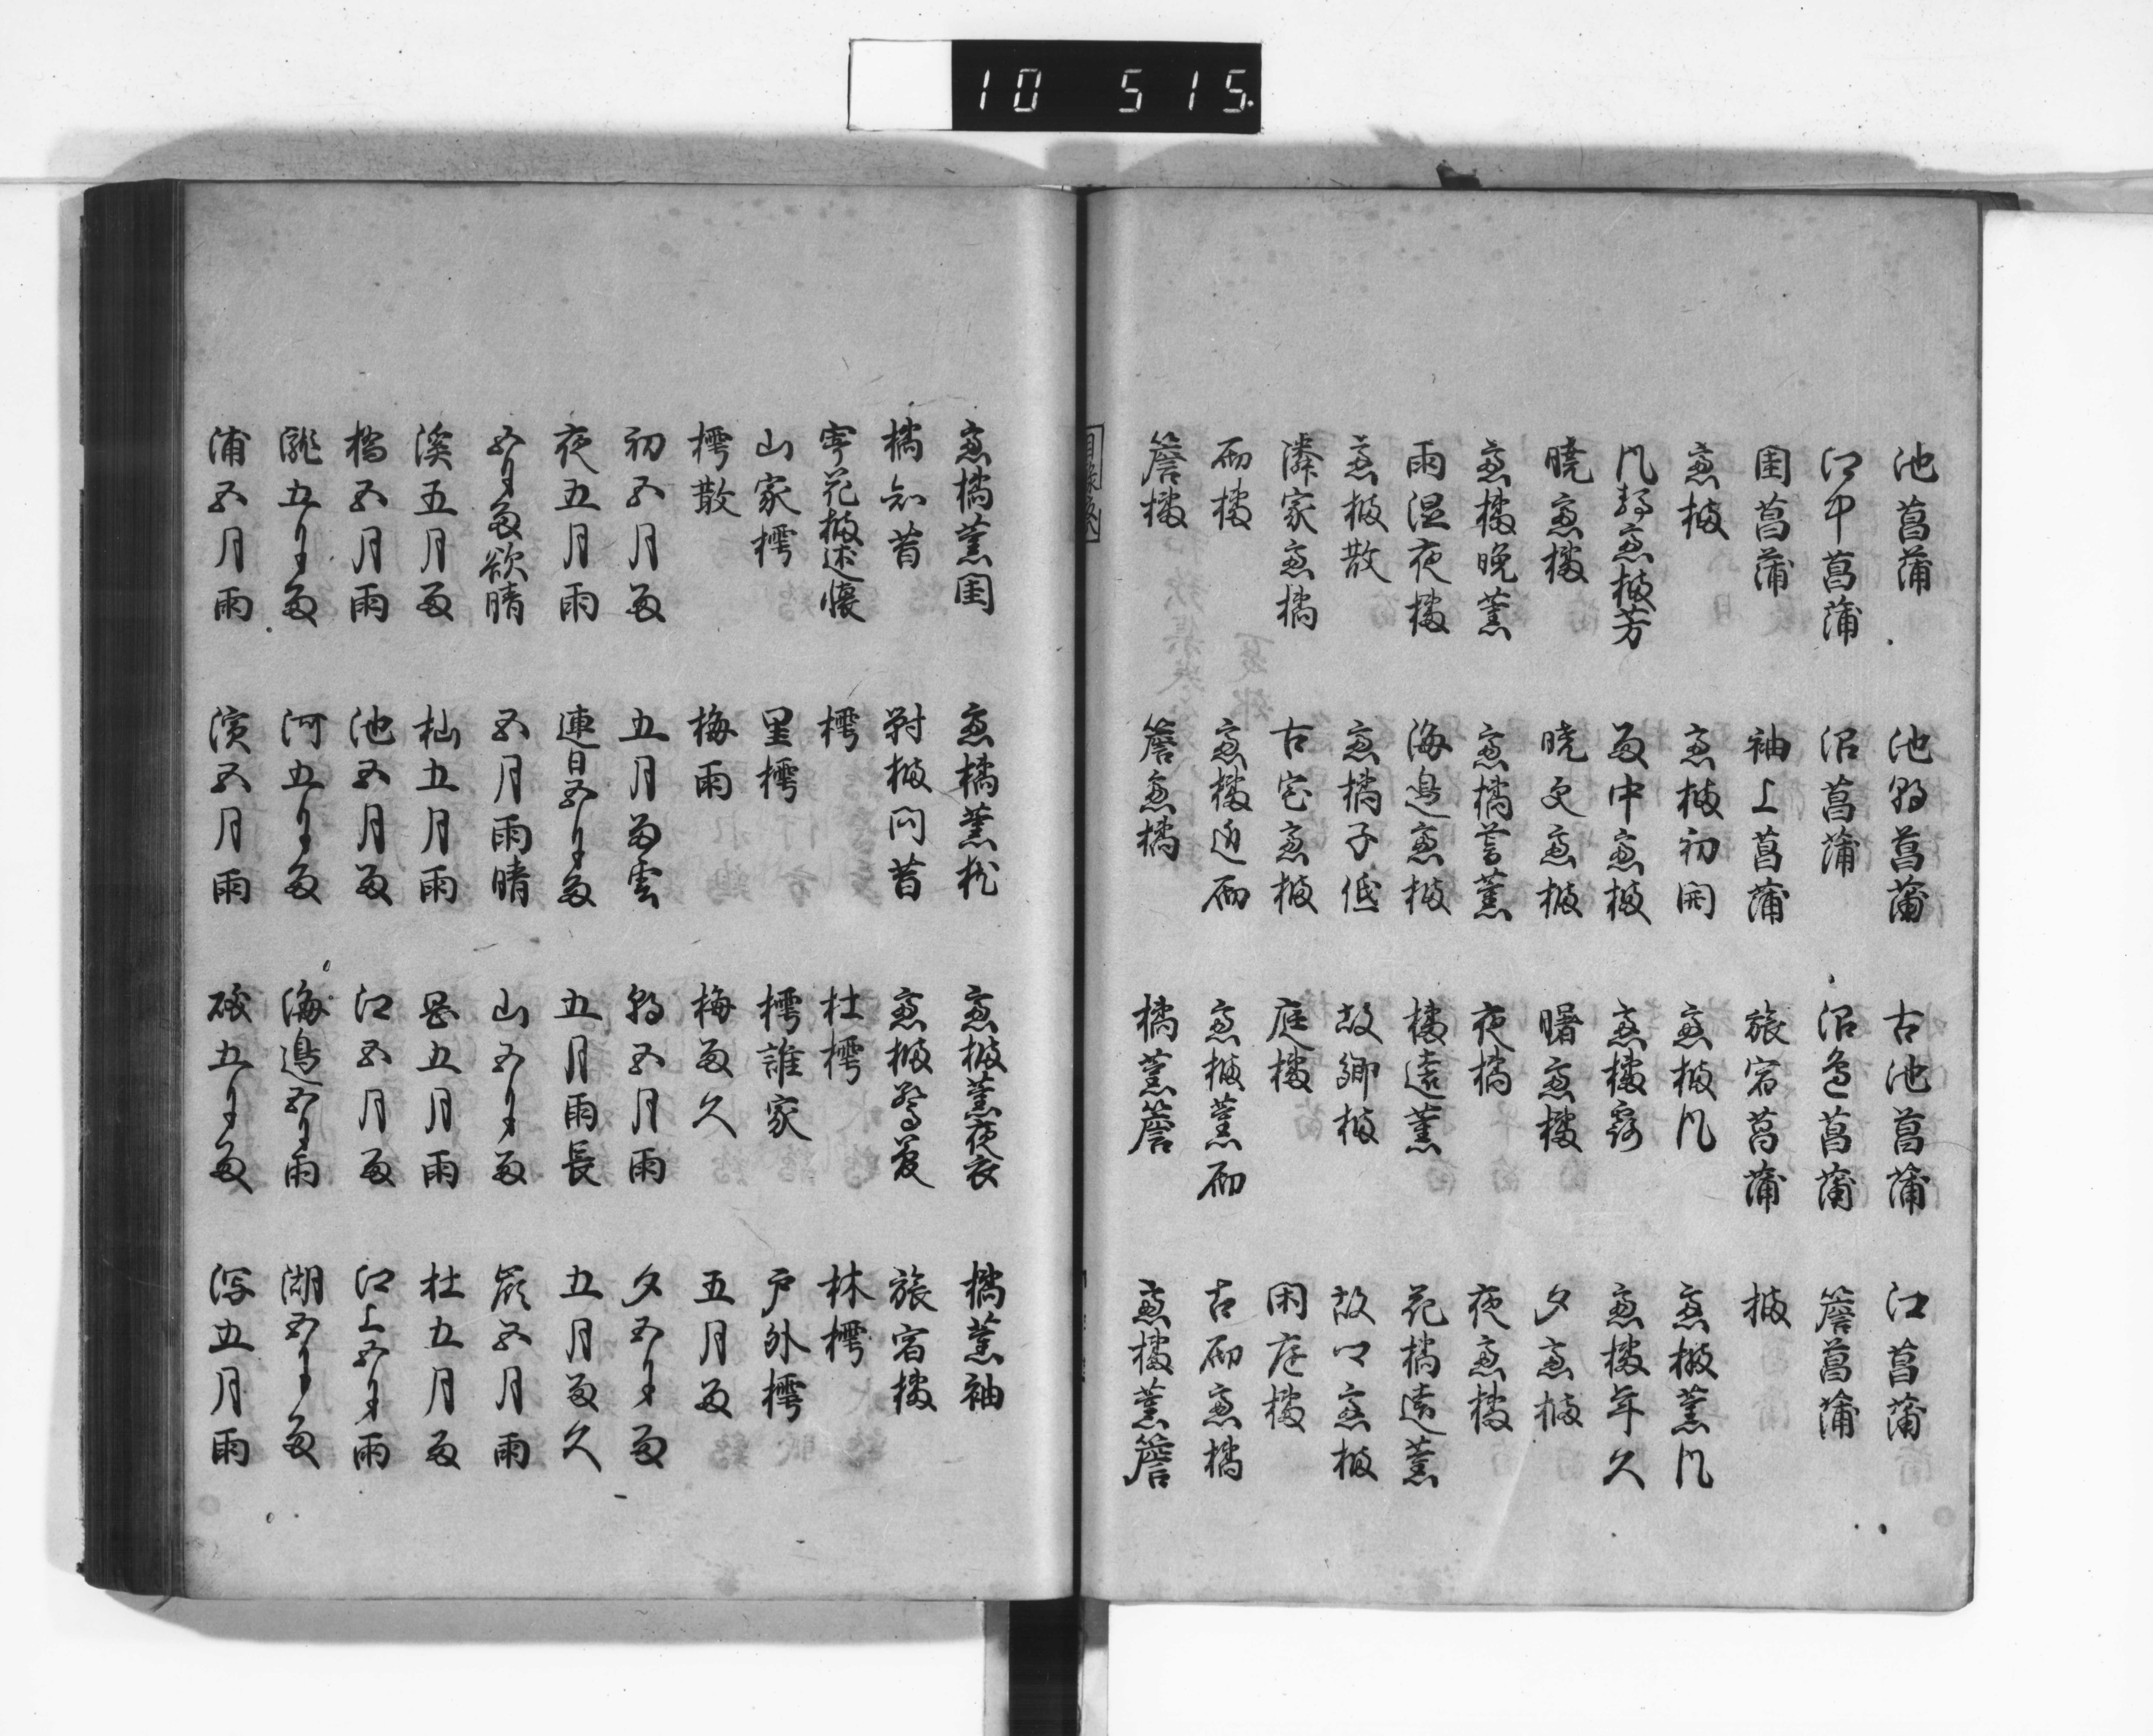 10 515.
池菖蒲　池朝菖蒲　古池菖蒲　江菖蒲
江中菖蒲　沼菖蒲　沼邊菖蒲　簷菖蒲
閨菖蒲　袖上菖蒲　旅宿菖蒲　橘
盧橘　盧橘初開　盧橘風　盧橘薫風
風静盧橘芳　雨中盧橘　盧橘露　盧橘年久
曉盧橘　曉更盧橘　曙盧橘　夕盧橘
盧橘晩薫　盧橘暮薫　夜橘　夜盧橘
雨湿夜橘　海邊盧橘　橘遠薫　花橘遠薫
盧橘散　盧橘子低　故郷橘　故郷盧橘
隣家盧橘　古宅盧橘　庭橘　閑庭橘
砌橘　盧橘近砌　盧橘薫砌　古砌盧橘
簷橘　簷盧橘　橘薫簷　盧橘薫簷
盧橘薫閨　盧橘薫枕　盧橘薫夜衣　橘薫袖
橘知昔　対橘問昔　盧橘驚夏　旅宿橘
寄花橘述懐　樗　杜樗　林樗
山家樗　里樗　樗誰家　戸外樗
樗散　梅雨　梅雨久　五月雨
初五月雨　五月雨雲　朝五月雨　夕五月雨
夜五月雨　連日五月雨　五月雨長　五月雨久
五月雨欲晴　五月雨晴　山五月雨　嶺五月雨
溪五月雨　杣五月雨　岡五月雨　杜五月雨
橋五月雨　池五月雨　江五月雨　江上五月雨
瀧五月雨　河五月雨　海邊五月雨　湖五月雨
浦五月雨　濱五月雨　礒五月雨　潟五月雨